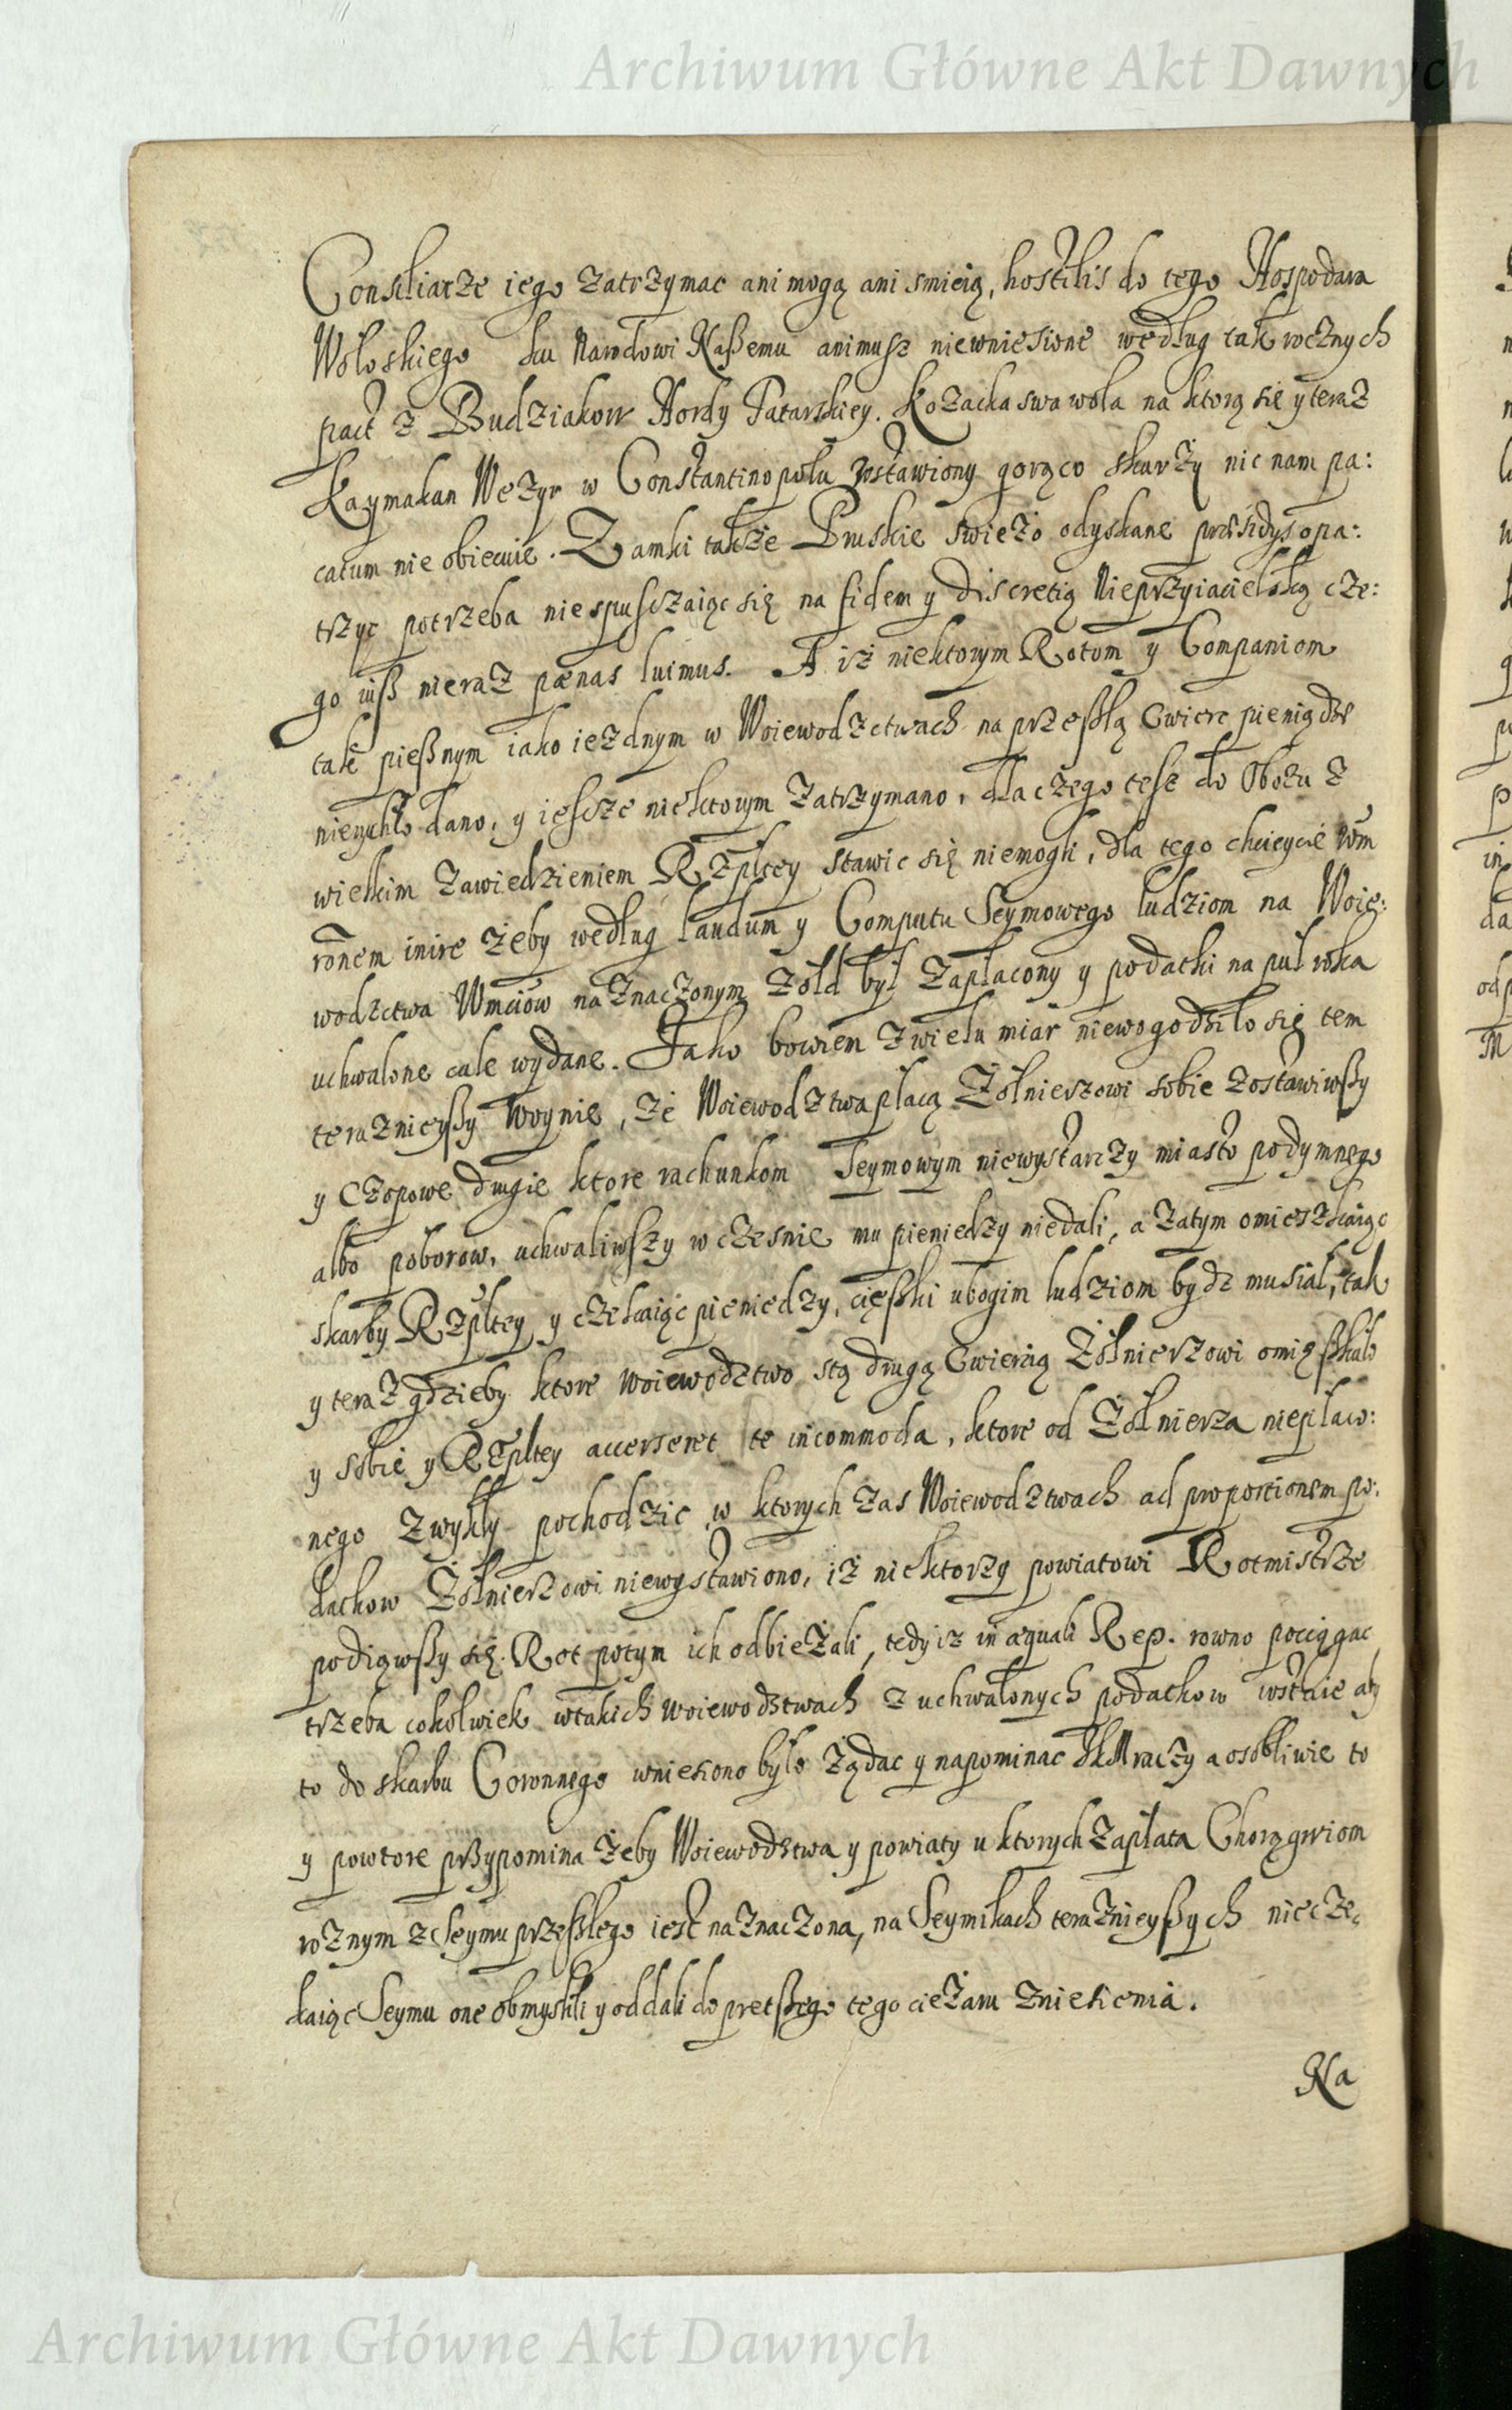 Archiwum Główne Akt Dawnych
Consiliarze iego zatrzymac ani mogą ani smieią, hostilis do tego Hospodara
Wołoskiego ku Narodowi Naßemu animusz niewniesione według tak rocznych
pact z Budziakow Hordy Tatarskiey. Kozacka swawola na ktorą się y teraz
Kaymakan Wezyr w Constantinopolu zostawiony gorąco skarży nic nam pa:
catum nie obiecuie. Zamki także Pruskie swieżo odyskane præsidys opa:
trzyc potrzeba niespuszczaiąc się na fidem y discretią Nieprzyiacielską cze:
go iuß nieraz pœnas luimus. A iż niektorym Rotom y Companiom
tak pießnym iako iezdnym w Woiewodzctwach na przeßłą Cwierc pieniądze
nierychło dano, y iescze niektorym zatrzymano, dla czego tesz do Obozu z
wielkim zawiedzieniem Rzpltey stawic się niemogli, dla tego chcieycie Wm
ronem inire żeby według laudum y Computu Seymowego ludziom na Woie:
wodzctwa Wmciow naznaczonym żołd był zapłacony y podatki na puł roka
uchwalone cale wydane. Jako bowiem z wielu miar niewogodziło się tem
teraznieyßy Woynie, że Woiewodztwa płacą Żołnierzowi sobie zostawiwßy
y Czopowe drugie ktore rachunkom Seymowym niewystarczy miasto podymnego
albo poborow, uchwaliwszy w czesnie mu pieniedzy niedali, a zatym omieszkaiąc
skarby Rzpltey y czekaiąc pieniedzy, cięßki ubogim ludziom bydz musiał, tak
y teraz gdzieby ktore woiewodztwo stą drugą Cwiercią Żołnierzowi omięßkało
y sobie y Rzpltey accerseret te incommoda, ktore od Żołnierza niepłaco:
nego zwykły pochodzic, w ktorych zas Woiewodztwach ad proportionem po:
datkow Żołnierzowi niewystawiono, iż niektorzy powiatowi Rotmistrze
podiąwßy się Rot potym ich odbieżali, tedy iz in æquali Rep. rowno pociągac
trzeba cokolwiek wtakich woiewodztwach z uchwalonych podatkow wstaie aby
to do skarbu Coronnego wniesiono było żądac y napominac JKM raczy a osobliwie to
y powtore przypomina żeby Woiewodztwa y powiaty u ktorych zapłata Chorągwiom
roznym z Seymu przeßłego iest naznaczona, na Seymikach teraznieyßych niecze,
kaiąc Seymu one obmyslili y oddali do pretßego tego cieżaru zniesienia.
Na
Archiwum Główne Akt Dawnych